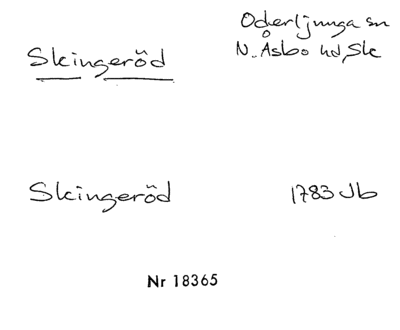 Skingeröd
Oderljunga sn
N. Åsbo hd, Sk
Skingeröd
1783 Jb
Nr 18365